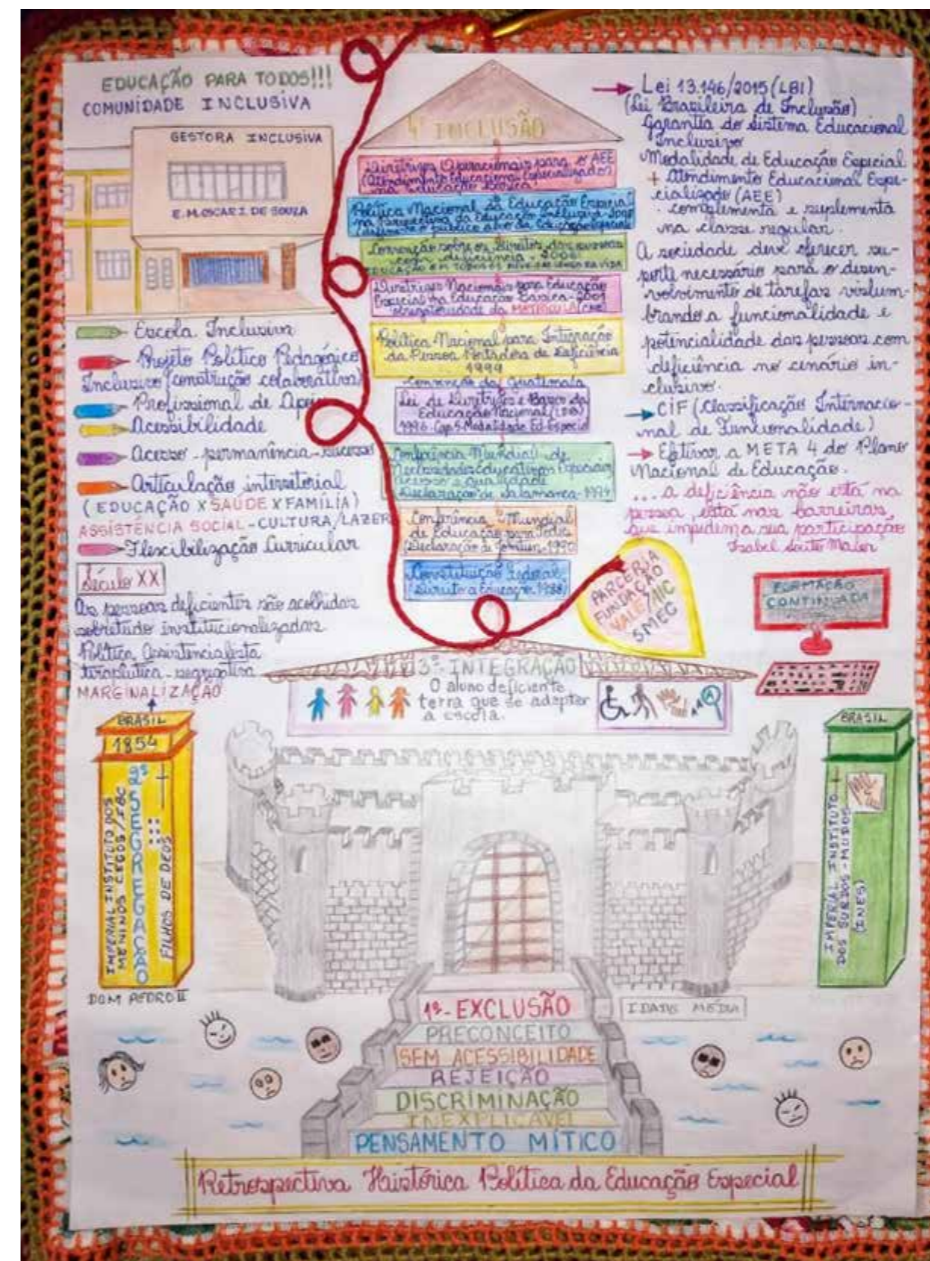 EDUCAÇÃO PARA TODOS!!!
COMUNIDADE INCLUSIVA
GESTORA INCLUSIVA
E.M.OSCAR J. DE SOUZA
Escola Inclusiva
Projeto Político Pedagógico
Inclusivo (construção colaborativa)
Profissional de Apoio
Acessibilidade
Acesso-permanência-sucesso
Articulação intersetorial
(EDUCAÇÃO X SAÚDE X FAMÍLIA)
ASSISTÊNCIA SOCIAL-CULTURA/LAZER
Flexibilização Curricular
Século XX
As pessoas deficientes são acolhidas
sobretudo institucionalizadas
Política Assistencialista
terapêutica - segregativa
MARGINALIZAÇÃO
4ª INCLUSÃO
Diretrizes Operacionais para o AEE
(Atendimento Educacional Especializado)
na Educação Básica
Política Nacional da Educação Especial
na Perspectiva da Educação Inclusiva-2008
Convenção sobre os Direitos das pessoas
com deficiência - 2006
Diretrizes Nacionais para Educação
Especial na Educação Básica-2001
obrigatoriedade da MATRÍCULA
Política Nacional para Integração
da Pessoa Portadora de Deficiência
1999
Convenção da Guatemala
Lei de Diretrizes e Bases da
Educação Nacional (LDB)
1996-Cap.5-Modalidade Ed.Especial
Conferência Mundial de
Necessidades Educativas Especiais
acesso e qualidade
Declaração de Salamanca-1994
Conferência Mundial
de Educação para Todos
(Declaração de Jomtien-1990
Constituição Federal
Direito a Educação 1988
Lei 13.146/2015 (LBI)
(Lei Brasileira de Inclusão)
Garantia do sistema Educacional
Inclusivo
Modalidade de Educação Especial
+ Atendimento Educacional Espe-
cializado (AEE)
. complementa e suplementa
na classe regular.
A sociedade deve oferecer su-
porte necessário para o desen-
volvimento de tarefas vislum-
brando a funcionalidade e
potencialidade das pessoas com
deficiência no cenário in-
clusivo.
CIF (Classificação Internacio-
nal de Funcionalidade)
Efetivar a META 4 do Plano
Nacional de Educação.
... a deficiência não está na
pessoa, está nas barreiras,
que impedem a sua participação
Isabel Maior
PARCERIA
FUNDAÇÃO
VALE/AIC
SMEC
FORMAÇÃO
CONTINUADA
3ª-INTEGRAÇÃO
O aluno deficiente
terra que se adaptar
a escola.
A
BRASIL
1854
IMPERIAL INSTITUTO DOS
MENINOS CEGOS/IBC
2ª SEGREGAÇÃO
FILHOS DE DEUS
DOM PEDRO II
BRASIL
IMPERIAL INSTITUTO
DOS SURDOS-MUDOS
(INES)
1ª-EXCLUSÃO
IDADE MÉDIA
PRECONCEITO
SEM ACESSIBILIDADE
REJEIÇÃO
DISCRIMINAÇÃO
INEXPLICÁVEL
PENSAMENTO MÍTICO
Retrospectiva Haistórica Política da Educação Especial